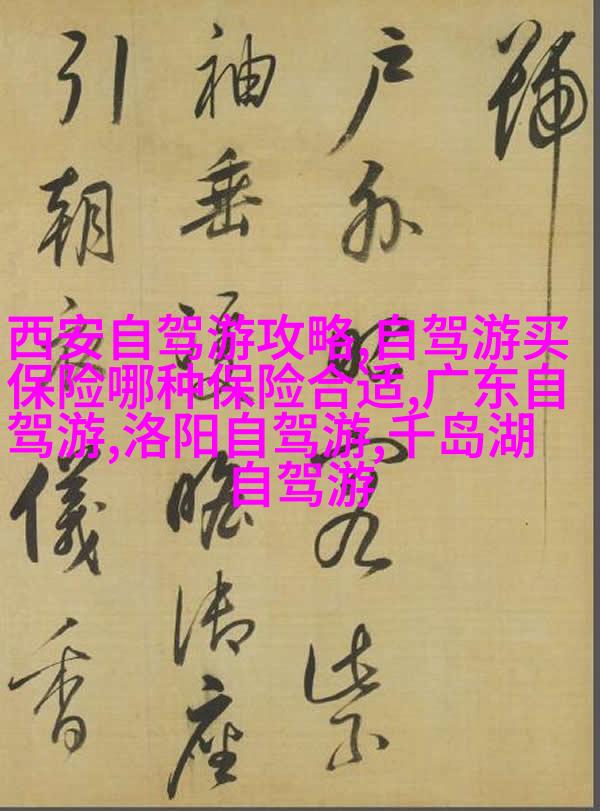 西安自驾游攻略,自驾游买
保险哪种保险合适,广东自
驾游,洛阳自驾游,千岛湖
自驾游
號
户外昭容紫
袖垂雙瞻御座
引朝儀香